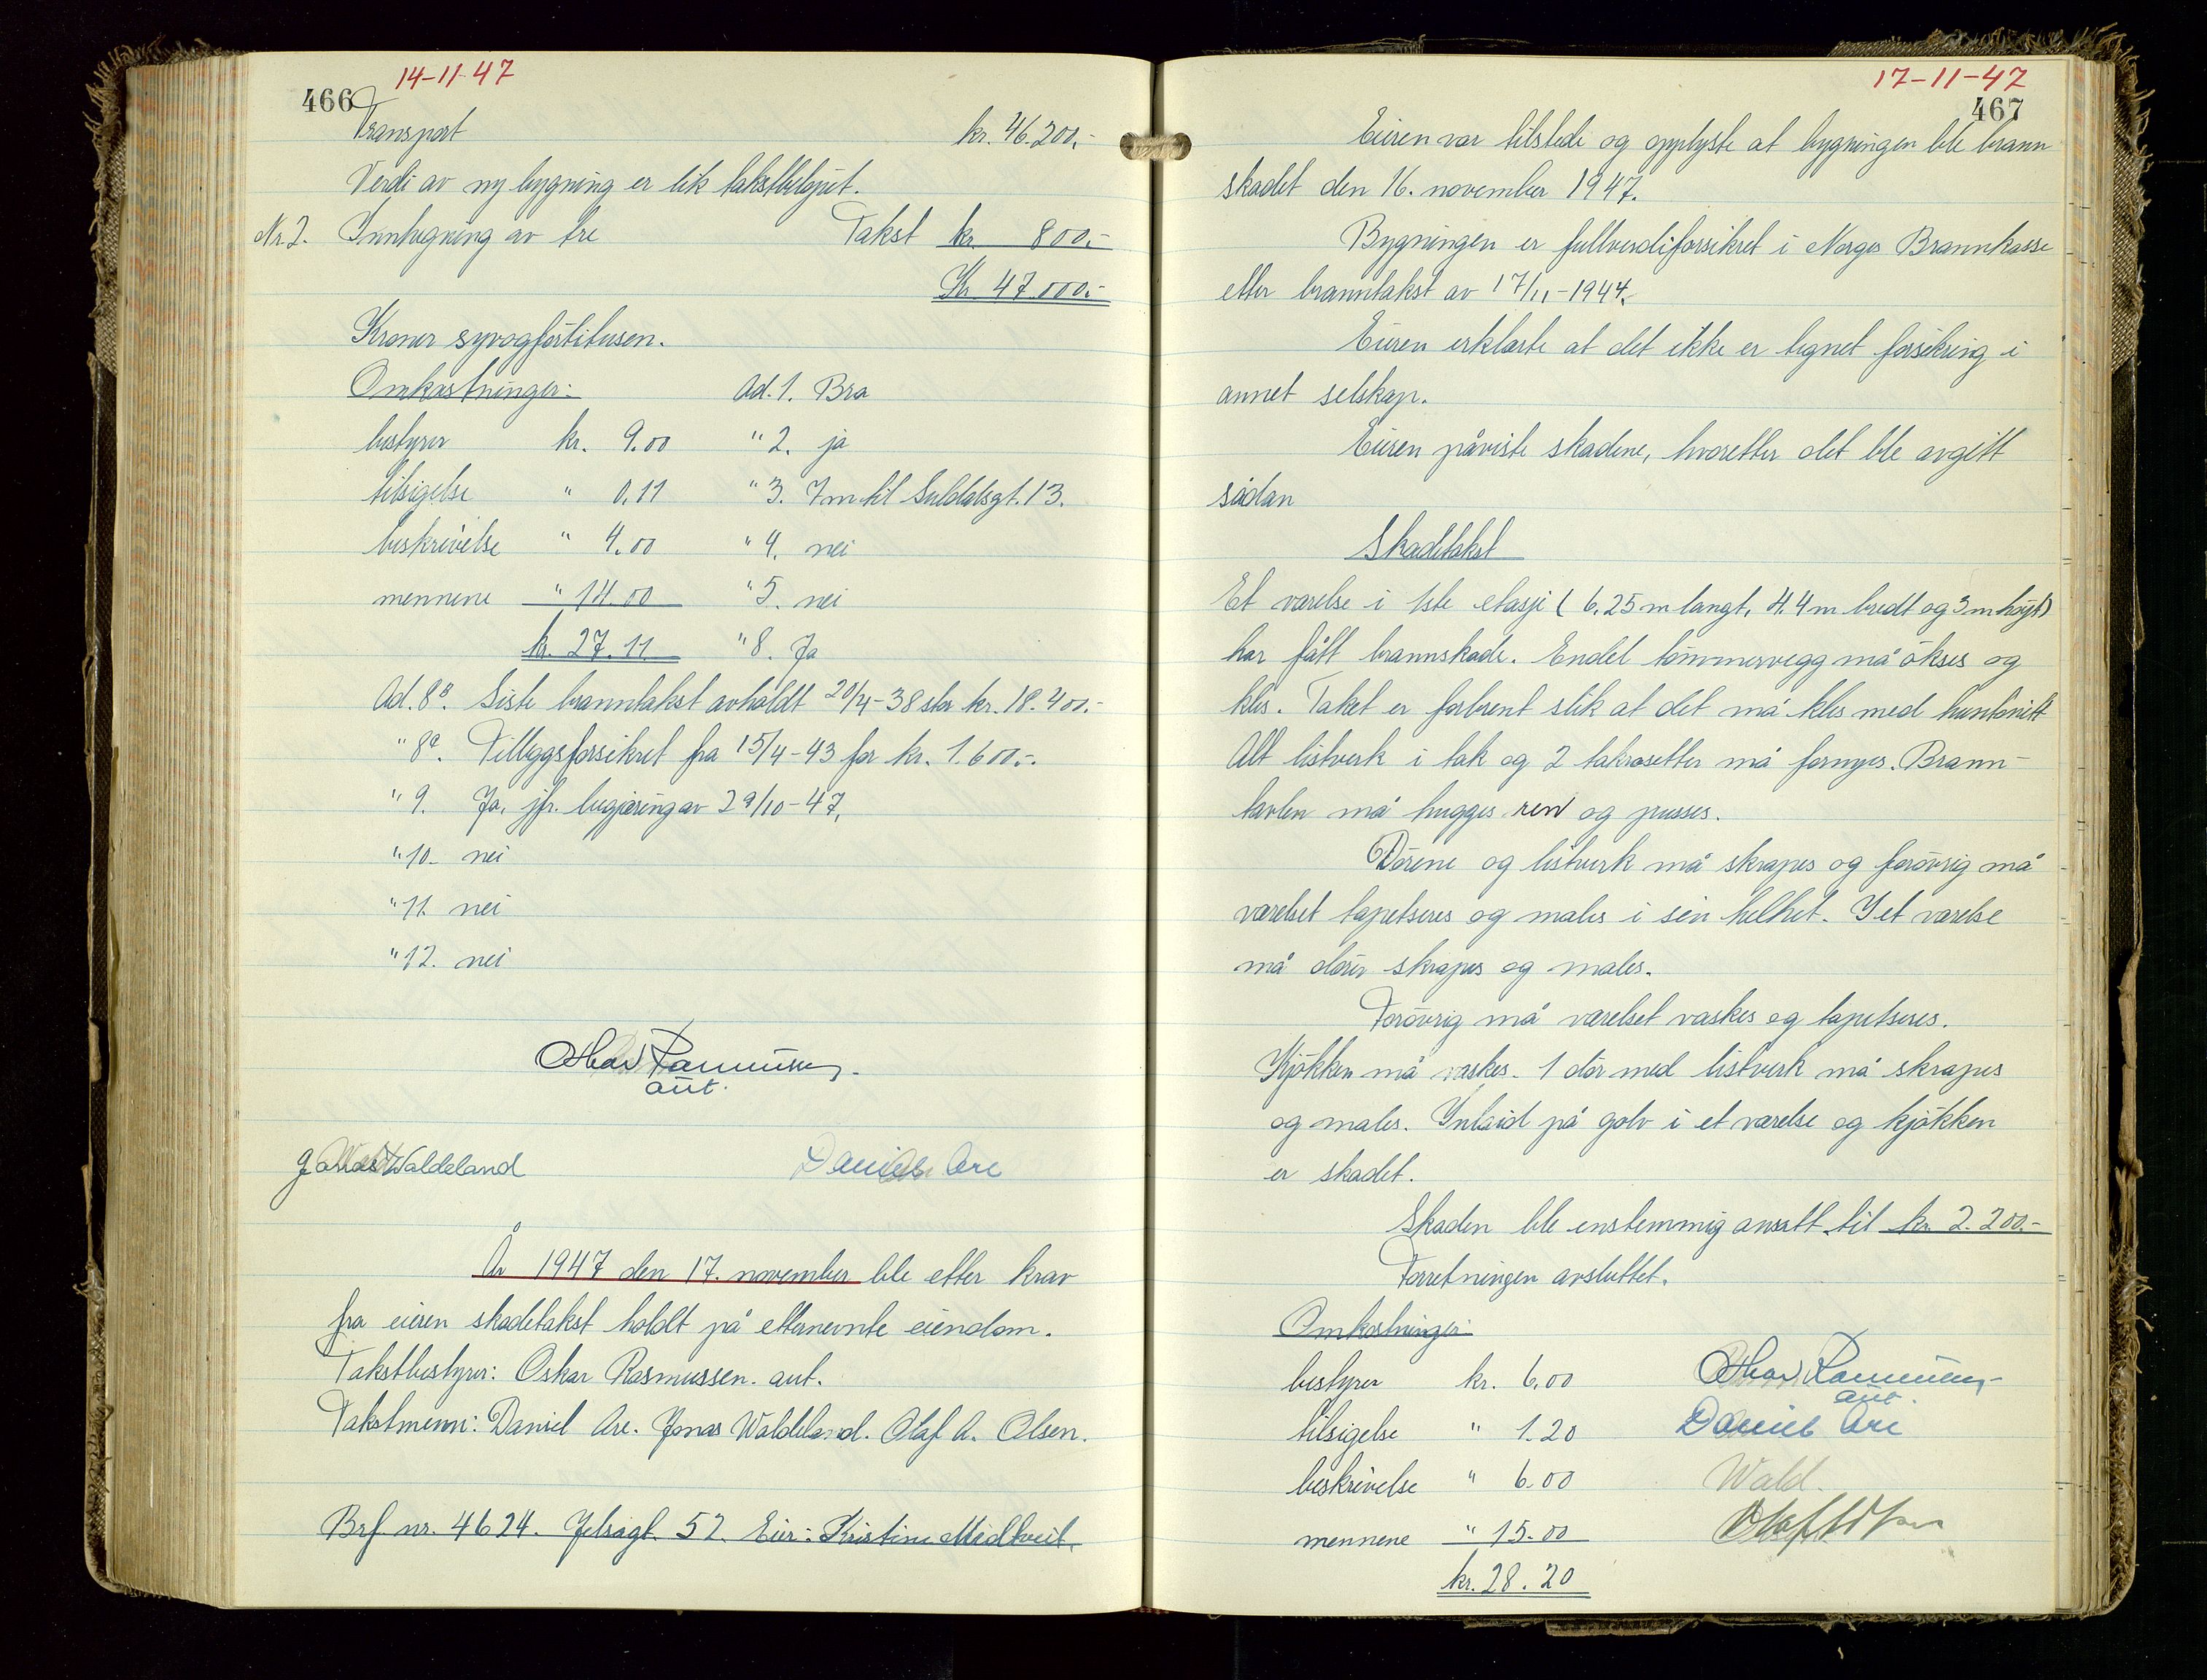 14-11-47
466
Transport kr. 46.200,-
Verdi av ny bygning er lik takstbeløpet.
Nr 2. Innhegning av tre Takst kr 800.-
Kr 47.000.-
Kroner syvogførtitusen.
Omkostninger: Ad. 1. Bra
bestyrer kr. 9.00 " 2. ja
tilsigelse " 0,11 " 3. 7 m til Suldalsgt. 13.
beskrivelse " 4.00 " 4. nei
mennene " 14.00 " 5. nei
kr. 27.11 " 8. Ja
Ad. 8ª. Siste branntakst avholdt 20/4-38 stor kr. 18.400.-
" 8ª. Tilleggsforsikret fra 15/4-43 for kr. 1.600.-.
" 9. Ja, jfr. begjæring av 29/10-47,
" 10. nei
" 11. nei
" 12. nei
Oskar Rasmussen.
aut.
Jonas Waldeland Daniel Are
År 1947 den 17. november ble etter krav
fra eieren skadetakst holdt på etternevnte eiendom.
Takstbestyrer: Oskar Rasmussen. aut.
Takstmenn: Daniel Are. Jonas Waldeland. Olaf A. Olsen.
Brf nr. 4624. Jelsagt. 52. Eier: Kristine Midtveit.
17-11-47
467
Eieren var tilstede og opplyste at bygningen ble brann
skadet den 16. november 1947.
Bygningen er fullverdiforsikret i Norges Brannkasse
etter branntakst av 17/11-1944.
Eieren erklærte at det ikke er tegnet forsikring i
annet selskap.
Eieren påviste skadene, hvoretter det ble avgitt
sådan
Skadetakst
Et værelse i 1ste etasje (6,25 m langt, 4.4 m bredt og 3 m høyt)
har fått brannskade. Endel tømmervegg må økses og
kles. Taket er forbrent slik at det må kles med huntonitt
Alt listverk i tak og 2 takrosetter må fornyes. Brann-
tavlen må hugges ren og pusses.
Dørene og listverk må skrapes og forøvrig må
værelset tapetseres og males i sin helhet. I et værelse
må dører skrapes og males.
Forøvrig må værelset vaskes og tapetseres.
Kjøkken må vaskes. 1 dør med listverk må skrapes
og males. Inlaid på golv i et værelse og kjøkken
er skadet.
Skaden ble enstemmig ansatt til kr 2.200.-
Forretningen avsluttet.
Omkostninger:
bestyrer kr. 6,00 Oskar Rasmussen
aut.
tilsigelse " 1.20 Daniel Are
beskrivelse " 6.00 Wald.
mennene " 15.00 Olaf A Olsen
kr. 28.20